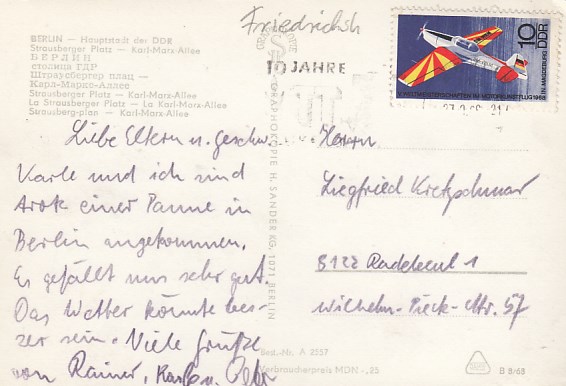 BERLIN — Hauptstadt der DDR
Strausberger Platz — Karl-Marx-Allee
БЕРЛИН
столица ГДР
Штраусбергер плац —
Карл-Маркс-Аллее
Strausberger Platz — Karl-Marx-Allee
La Strausberger Platz — La Karl-Marx-Allee
Strausberg-plan — Karl-Marx-Allee
Friedrichsh
10 JAHRE
10 DDR
V. WELTMEISTERSCHAFTEN IM MOTORKUNSTFLUG 1968
IN MAGDEBURG
Liebe Eltern u. Geschw.
Karle und ich sind
trotz einer Panne in
Berlin angekommen.
Es gefällt uns sehr gut.
Das Wetter könnte bes-
zer sein. Viele Grüße
von Rainer, Karl u.
GRAPHOKOPIE H. SANDER KG, 1071 BERLIN
Herrn
Siegfried Kretzschmar
8122 Radebeul 1
Wilhelm-Pieck-Str. 57
Best.-Nr. A 2557
Verbraucherpreis MDN -,25
B 8/68